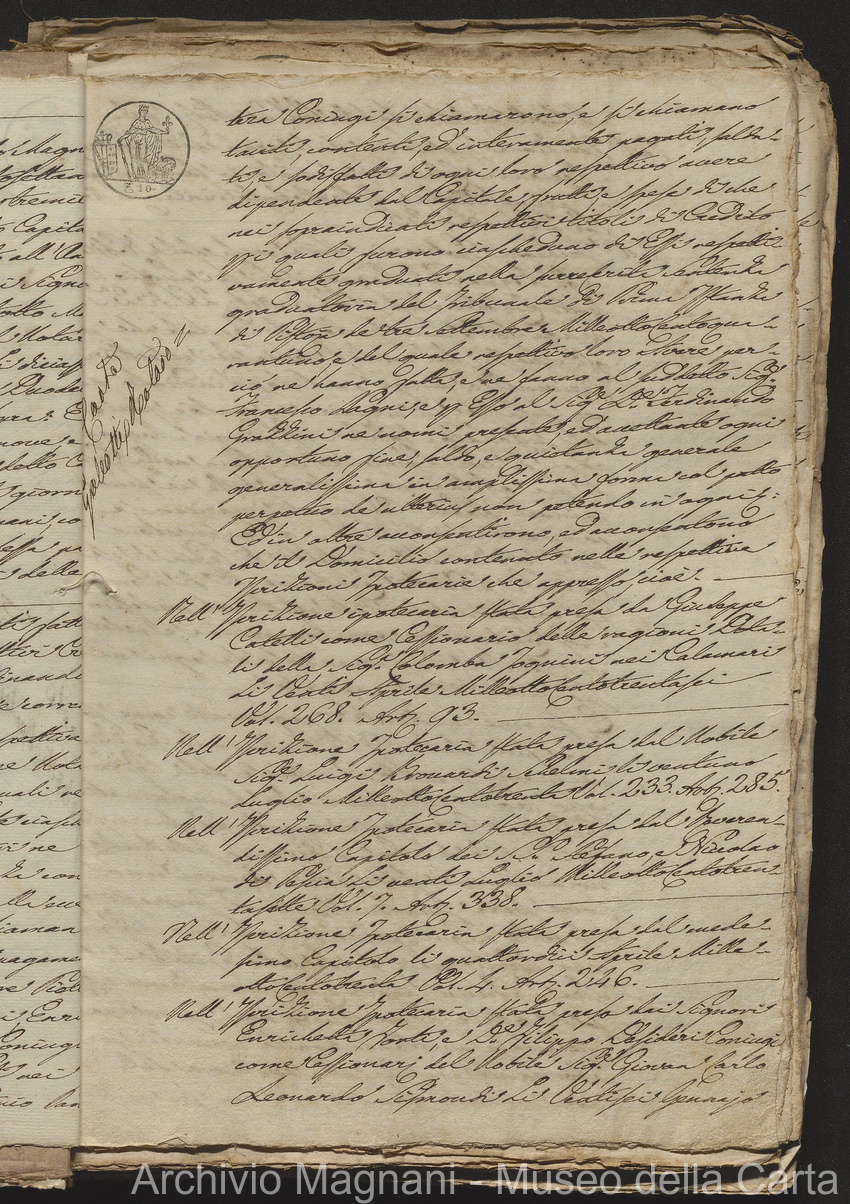 tera Coniugi si chiamarono, e si chiamano
taciti, contenti, ed interamente pagati, salda-
ti, e sodisfatti di ogni loro respettivo avere
dipendente dal Capitale, frutti, e spese di che
nei sopraindicati respettivi titoli di Credito
pei quali furono ciascheduno di Essi respetti-
vamente graduati nella surreferita Sentenza
graduatoria del Tribunale di Prima Istanza
di Pistoia de' tre Settembre Milleottocentoqua-
rantuno, e del quale respettivo loro Avere per-
ciò ne hanno fatta, e ne fanno al suddetto Sigr.
Francesco Magni, e p. Esso al Sigr. Dr. Ferdinando
Grazzini ne nomi presente, ed accettante ogni
opportuna fine, saldo, e quietanza generale
generalissima in amplissima forma col patto
perpetuo de ulterius non petendo in ogni
Ed in oltre acconsentirono, ed acconsentono
che il Domicilio contenuto nelle respettive
Iscrizioni Ipotecarie che appresso, cioè. -
Nell' Iscrizione ipotecaria stata presa da Giuseppe
Catelli come Cessionario delle ragioni Dota-
li della Sigra. Colomba nei Calamari
Li Venti Aprile Milleottocentotrentasei
Vol. 268. Art. 93. -
Nell' Iscrizione Ipotecaria stata presa dal Nobile
Sigr. Luigi li ventuno
Luglio Milleottocentotrenta Vol. 233. Art. 285.
Nell' Iscrizione Ipotecaria stata presa dal Reveren-
dissimo Capitolo dei SS. Stefano, e Niccolao
di Pescia Li venti Luglio Milleottocentotren-
tasette Vol. 7. Art. 338. -
Nell' Iscrizione Ipotecaria stata presa dal mede-
simo Capitolo li quattordici Aprile Mille-
ottocentotrenta Vol. 4. Art. 246. -
Nell' Iscrizione Ipotecaria stata presa dai Signori
Enrichetta Fonti, e Dr. Filippo Desideri Coniugi
come Cessionarj del Nobile Sigr. Giovan Carlo
Leonardo Sismondi Li Ventisei Gennajo
Carta
Galeotti Notaro =
Archivio Magnani - Museo della Carta